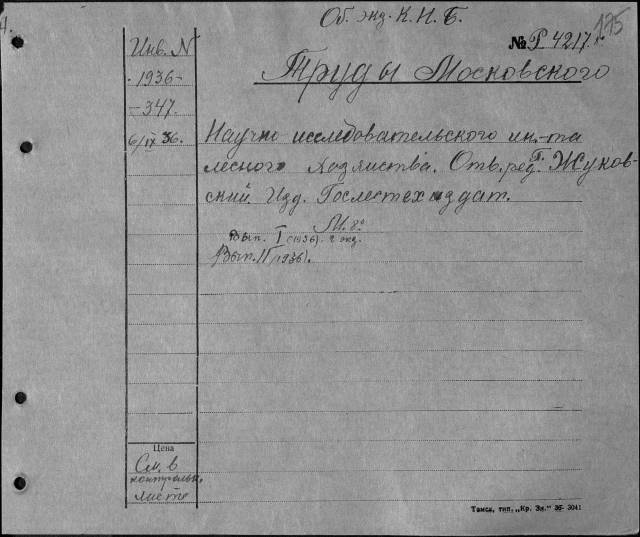 Об. экз. К. Н. Б.
175
№ Р. 4217.
Инв. N
1936-
-347.
6/IX 36.
Труды Московского
Научно исследовательского ин.-та
лесного хозяйства. Отв. ред. Г. Жуков-
ский. Изд. Гослестехиздат.
М. 8°
Вып. I (1936). 2 экз.
Вып. II (1936).
Цена
См. в
контрольн.
листе
Томск, тип. „Кр. Зн." 36- 3041